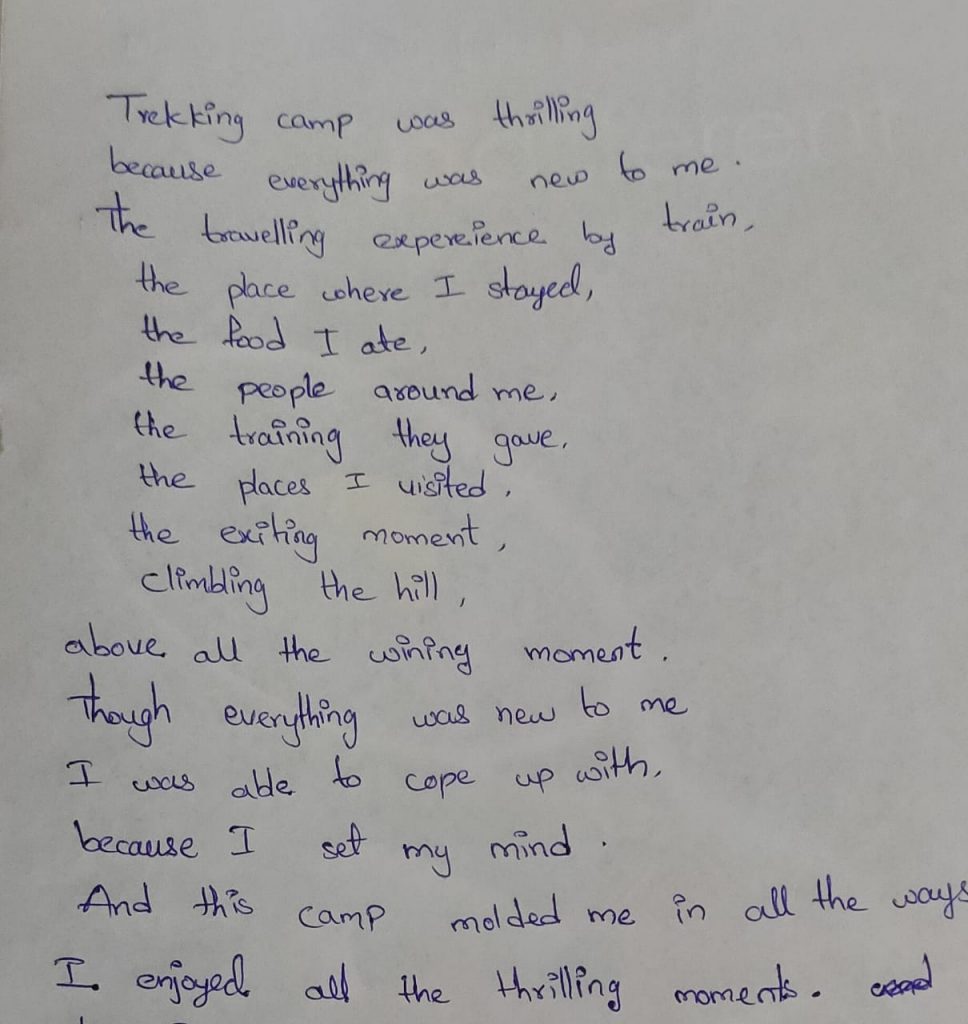 Trekking camp was thrilling
because everything was new to me.
The travelling expereience by train,
the place where I stayed,
the food I ate,
the people around me,
the training they gave,
the places I visited,
the exiting moment,
climbling the hill,
above all the wining moment.
Though everything was new to me
I was able to cope up with,
because I set my mind.
And this camp molded me in all the ways
I enjoyed all the thrilling moments.